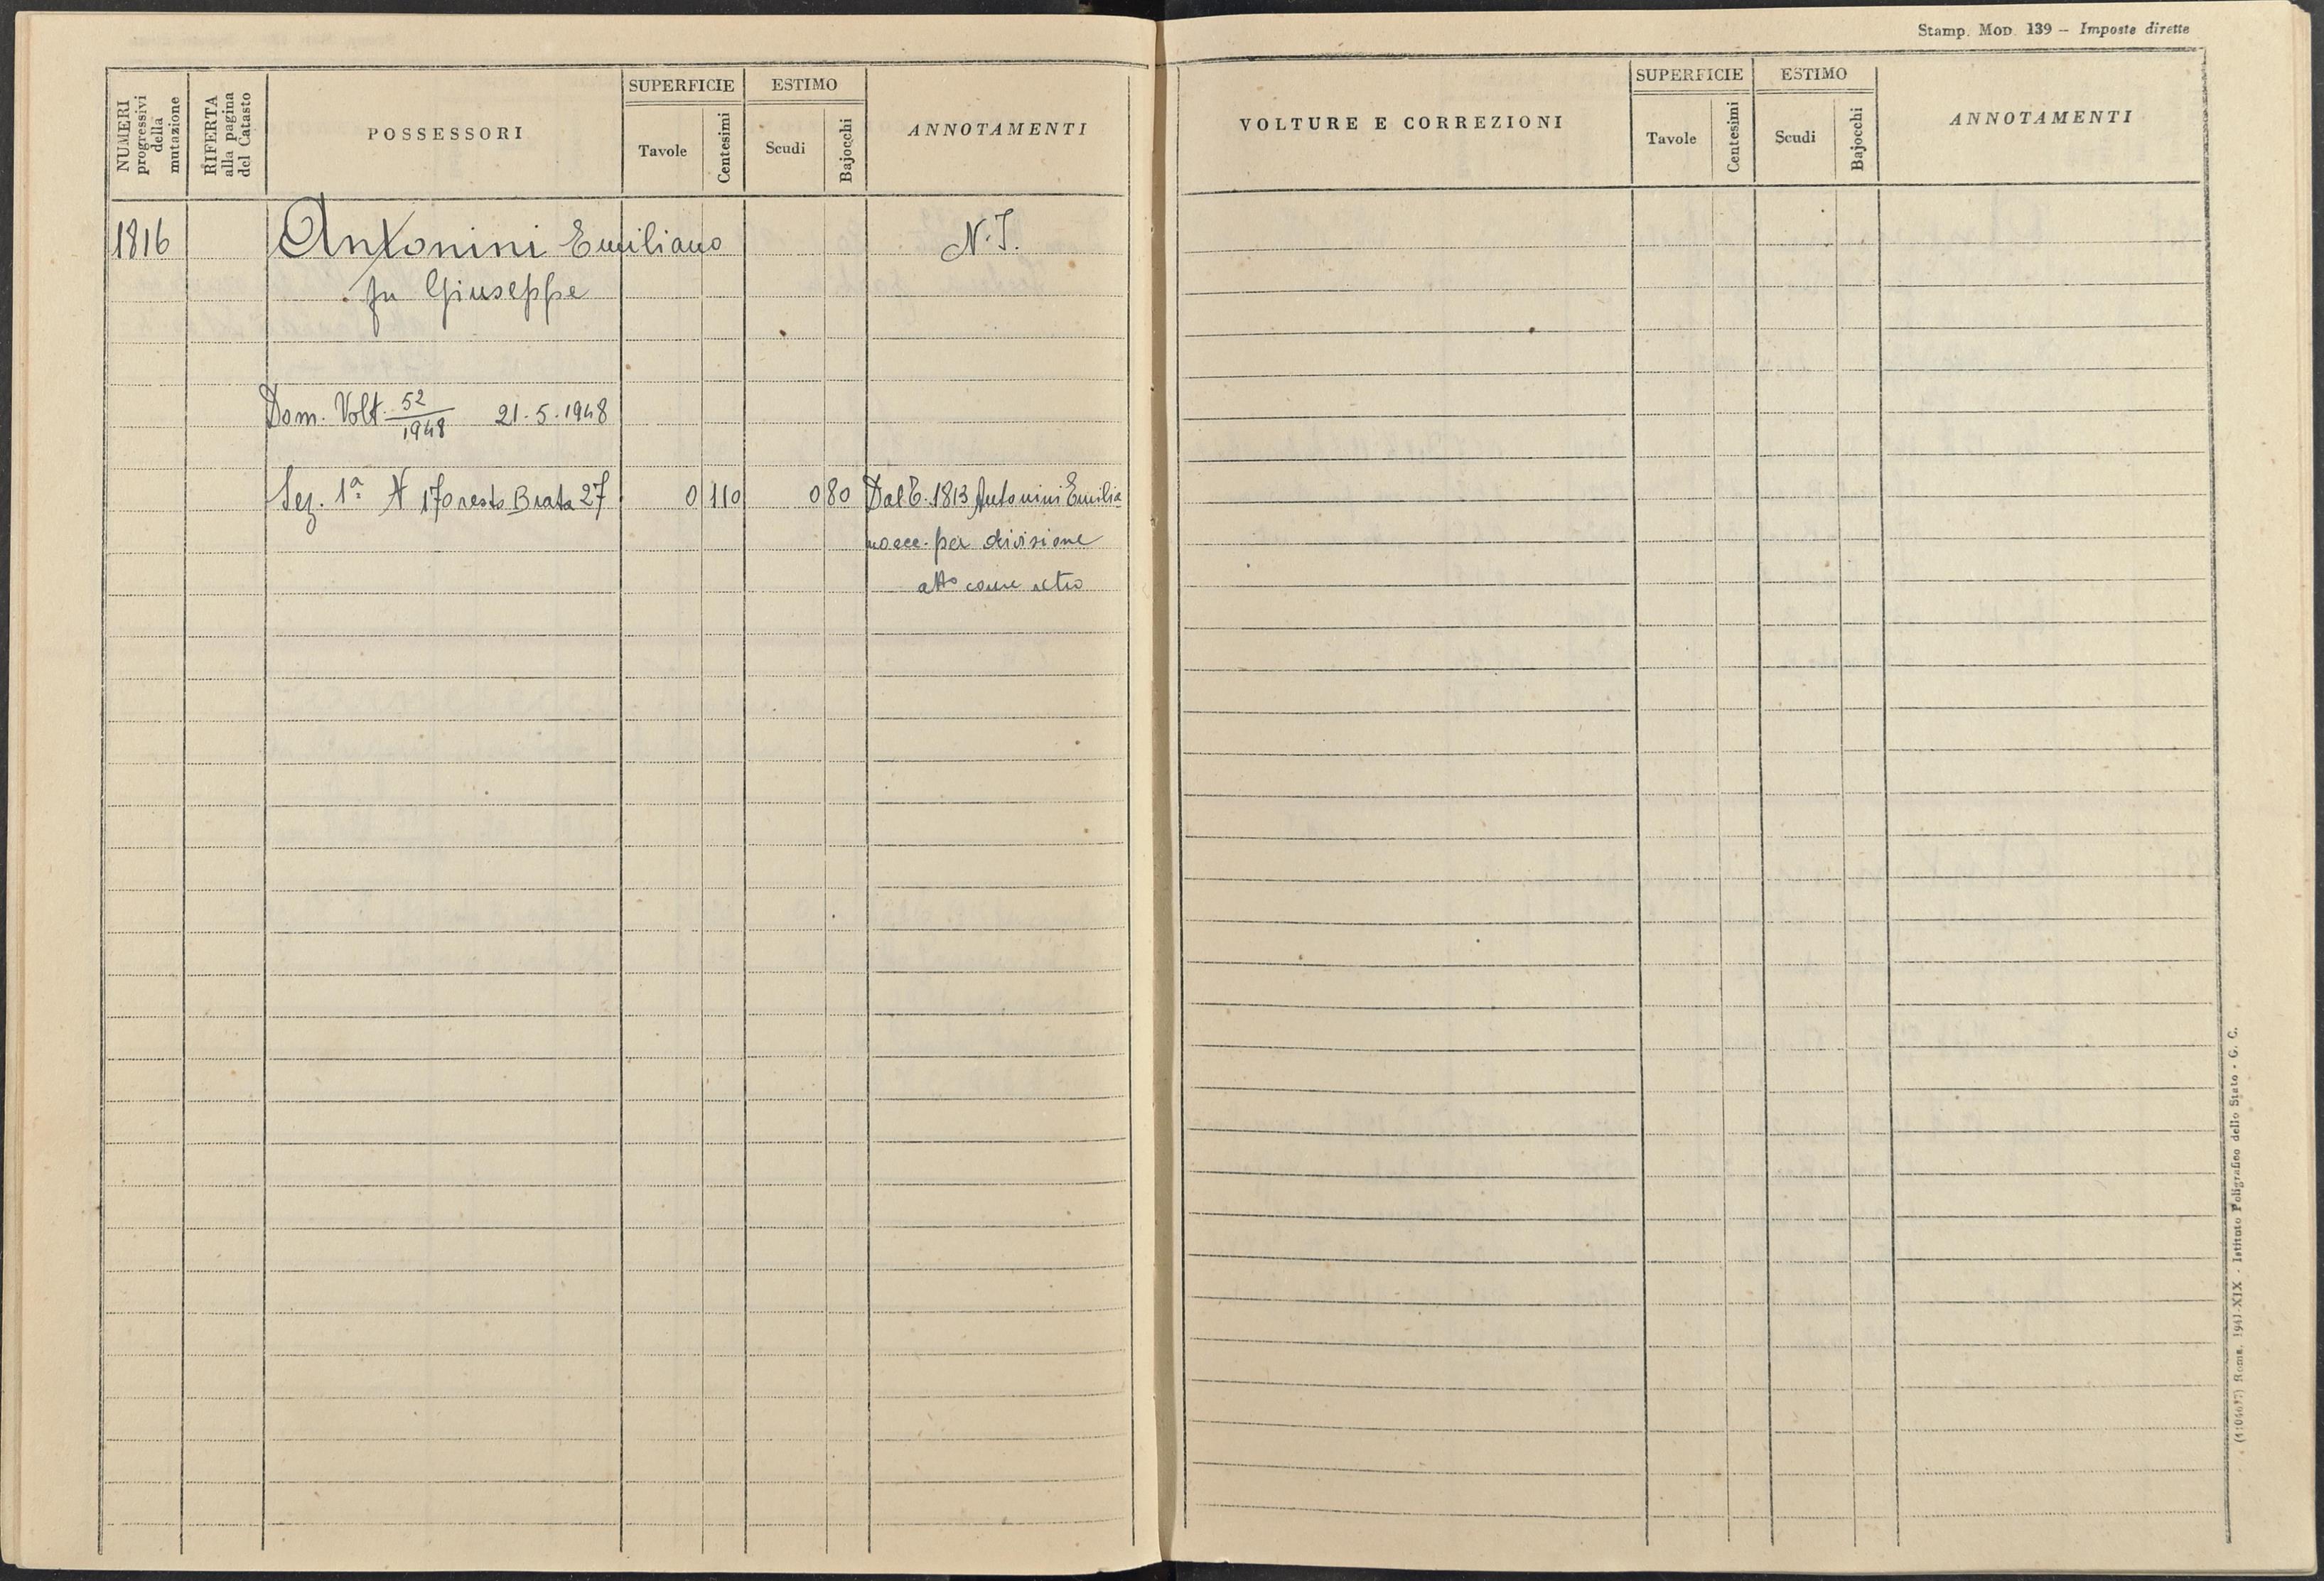 Stamp. Mod. 139 – Imposte dirette
NUMERI progressivi della mutazione
RIFERTA alla pagina del Catasto
POSSESSORI
SUPERFICIE
Tavole
Centesimi
ESTIMO
Scudi
Bajocchi
ANNOTAMENTI
1816 Antonini Emiliano N.I.
fu Giuseppe
Dom. Volt. 52/1948 21-5-1948
Sez. 1ª N 170 resto Brata 27 0 110 0 80 Dal P. 1813 Antonini Emilia
no ecc. per divisione
atto come retro
VOLTURE E CORREZIONI
SUPERFICIE
Tavole
Centesimi
ESTIMO
Scudi
Bajocchi
ANNOTAMENTI
Roma, 1941-XIX - Istituto Poligrafico dello Stato - G. C.